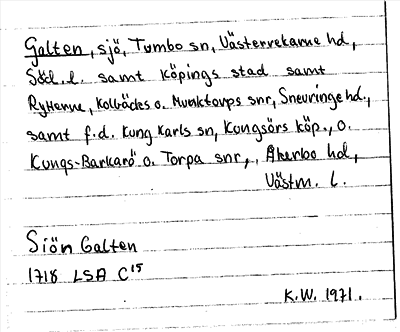 Galten, sjö, Tumbo sn, Västerrekarne hd,
Söd. l. samt Köpings stad samt
Rytterne, Kolbäcks o. Munktorps snr, Snevringe hd.,
samt f.d. Kung Karls sn, Kungsörs köp., o.
Kungs-Barkarö o. Torpa snr,, Åkerbo hd,
Västm. l.
Siön Galten
1718 LSA C15
K.W. 1971.